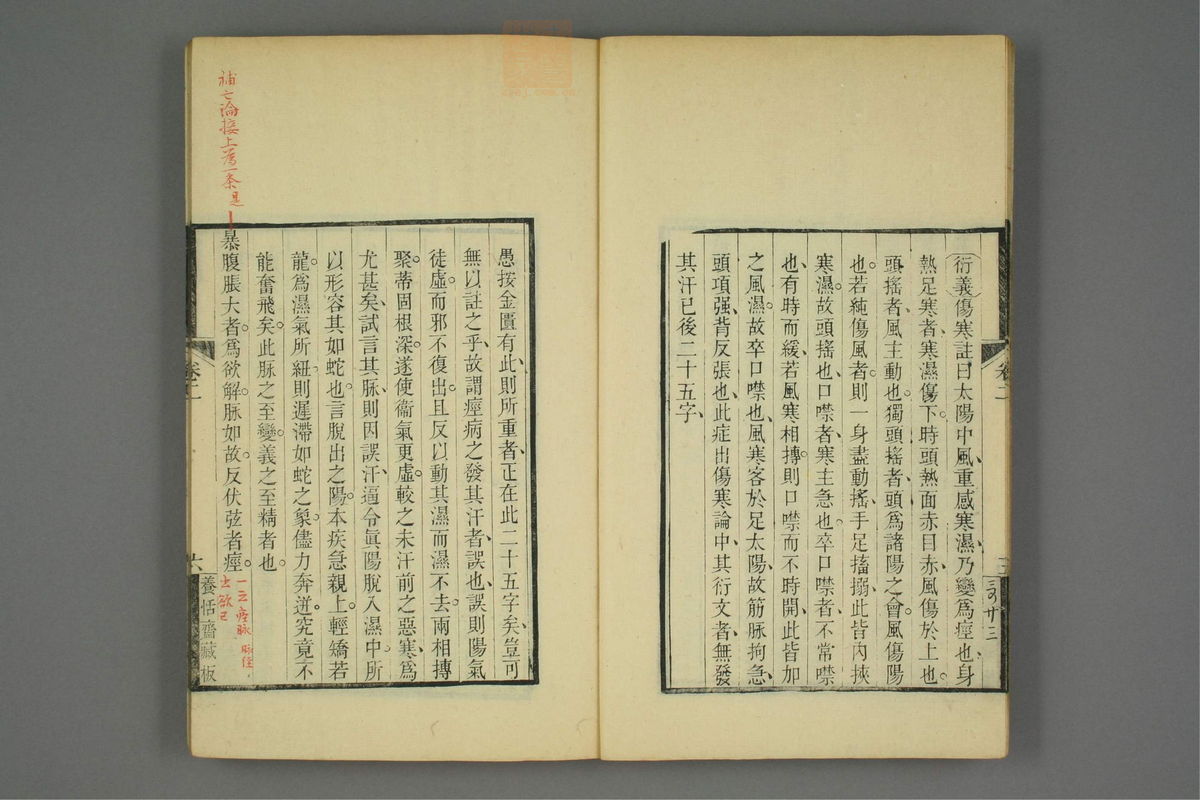 衍義傷寒註曰太陽中風重感寒濕乃變爲痙也身
熱足寒者寒濕傷下時頭熱面赤目赤風傷於上也
頭搖者風主動也獨頭搖者頭爲諸陽之會風傷陽
也若純傷風者則一身盡動搖手足搐搦此皆內挾
寒濕故頭搖也口噤者寒主急也卒口噤者不常噤
也有時而緩若風寒相摶則口噤而不時開此皆加
之風濕故卒口噤也風寒客於足太陽故筋脉拘急
頭項强背反張也此症出傷寒論中其衍文者無發
其汗已後二十五字
愚按金匱有此則所重者正在此二十五字矣豈可
無以註之乎故謂痙病之發其汗者誤也誤則陽氣
徒虛而邪不復出且反以動其濕而濕不去兩相摶
聚蒂固根深遂使衞氣更虛較之未汗前之惡寒爲
尤甚矣試言其脉則因誤汗逼令眞陽脫入濕中所
以形容其如蛇也言脫出之陽本疾急親上輕矯若
龍爲濕氣所紐則遲滯如蛇之象儘力奔迸究竟不
能奮飛矣此脉之至變義之至精者也
暴腹脹大者爲欲解脉如故反伏弦者痙
補亡論接上爲一条是
卷二
六
養恬齋藏板
卷二